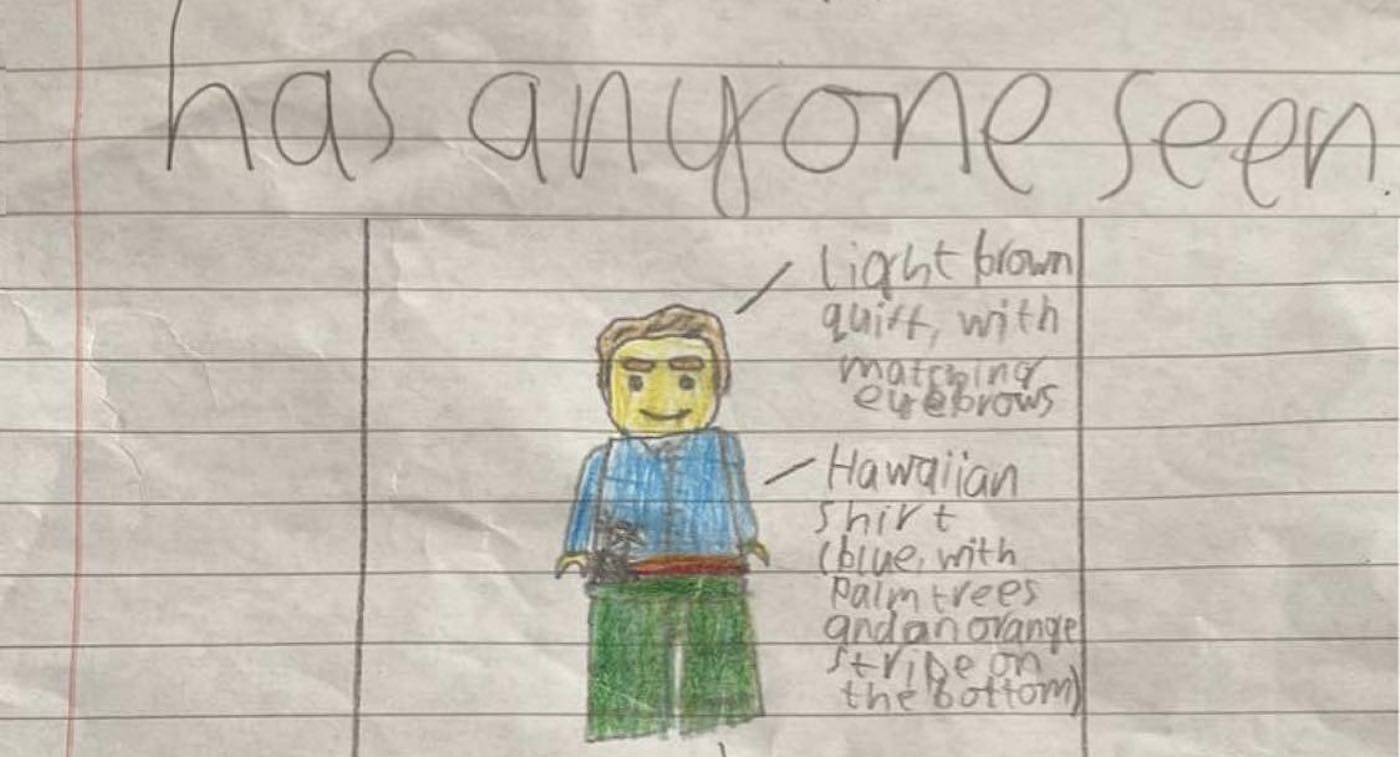 has anyone seen
light brown
quiff, with
matching
eyebrows
Hawaiian
shirt
(blue, with
palm trees
and an orange
stripe on
the bottom)